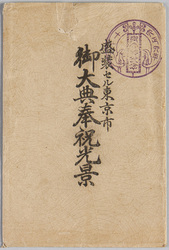 盛装セル東京市
御大典奉祝光景